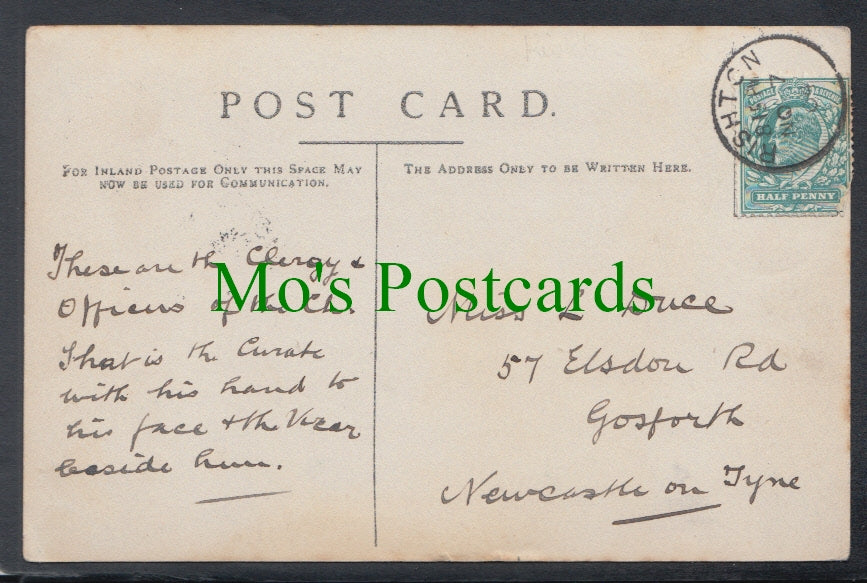 POST CARD.
FOR INLAND POSTAGE ONLY THIS SPACE MAY
NOW BE USED FOR COMMUNICATION.
THE ADDRESS ONLY TO BE WRITTEN HERE.
RISHTON
POSTAGE
HALF PENNY
These are the Clergy &
Officers of the Ch.
That is the Curate
with his hand to
his face & the Vicar
beaside him.
Mo's Postcards
Miss L
57 Elsdon Rd
Gosforth
Newcastle on Tyne